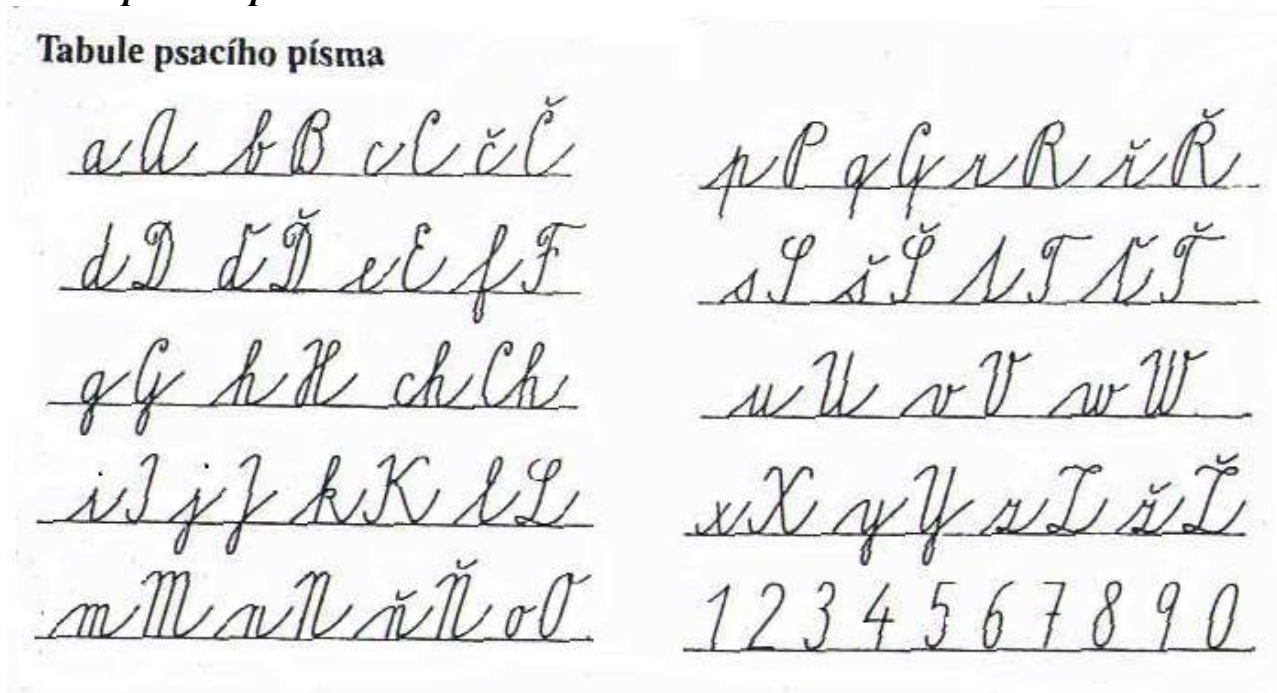 Tabule psacího písma
aA bB cC čČ
dD ďĎ eE fF
gG hH chCh
iI jJ kK lL
mM nN ňŇ oO
pP qQ rR řŘ
sS šŠ tT ťŤ
uU vV wW
xX yY zZ žŽ
1 2 3 4 5 6 7 8 9 0